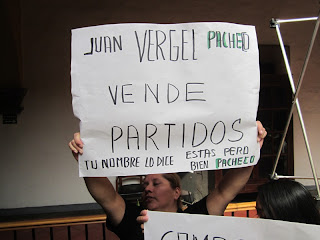 JUAN VERGEL PACHECO
VENDE
PARTIDOS
TU NOMBRE LO DICE ESTAS PERO
BIEN PACHECO